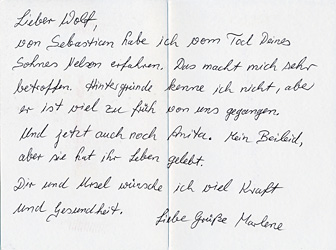 Lieber Wolf,
von Sebastian habe ich vom Tod Deines
Sohnes Nelson erfahren. Das macht mich sehr
betroffen. Hintergründe kenne ich nicht, aber
er ist viel zu früh von uns gegangen.
Und jetzt auch noch Anita. Mein Beileid,
aber sie hat ihr Leben gelebt.
Dir und Ursel wünsche ich viel Kraft
und Gesundheit.
Liebe Grüße Marlene